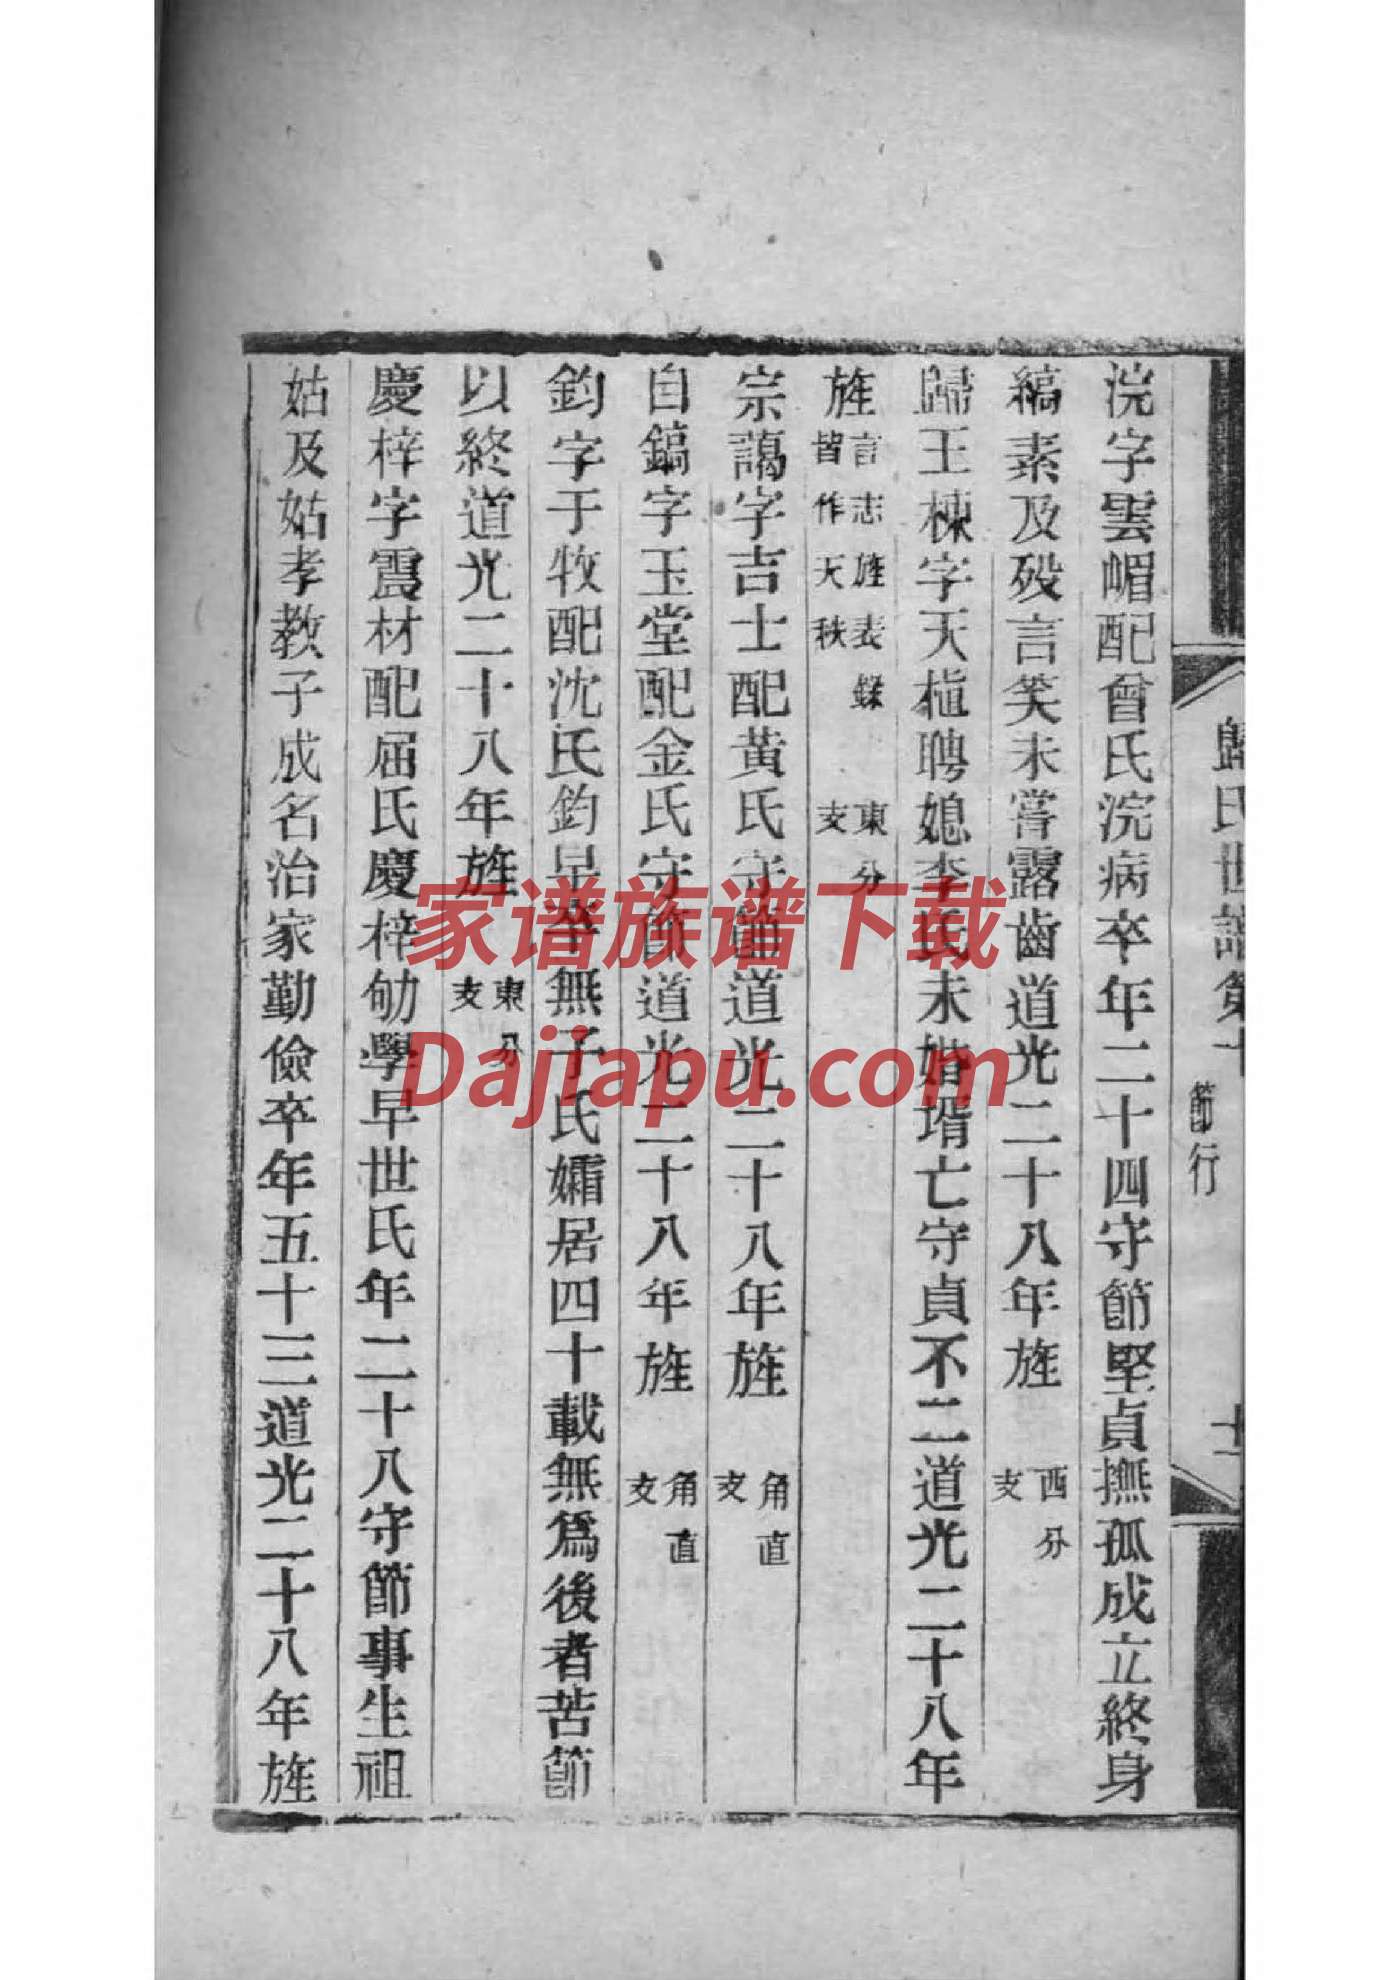 歸氏世譜第十 節行 十一
浣字雲嵋配曾氏浣病卒年二十四守節堅貞撫孤成立終身
縞素及殁言笑未嘗露齒道光二十八年旌 西分支
歸王棟字天植聘媳李氏未婚壻亡守貞不二道光二十八年
旌言志旌表錄皆作天秩 東分支
宗藹字吉士配黃氏守節道光二十八年旌 角直支
自鎬字玉堂配金氏守節道光二十八年旌 角直支
鈞字于牧配沈氏鈞早卒無子氏孀居四十載無爲後者苦節
以終道光二十八年旌 東分支
慶梓字震材配屈氏慶梓劬學早世氏年二十八守節事生祖
姑及姑孝教子成名治家勤儉卒年五十三道光二十八年旌
家谱族谱下载
Dajiapu.com